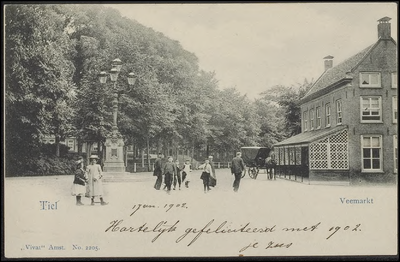 Tiel
Veemarkt
1 Jan. 1902.
Hartelijk gefeliciteerd met 1902.
je zus
„Vivat" Amst. No. 1203.